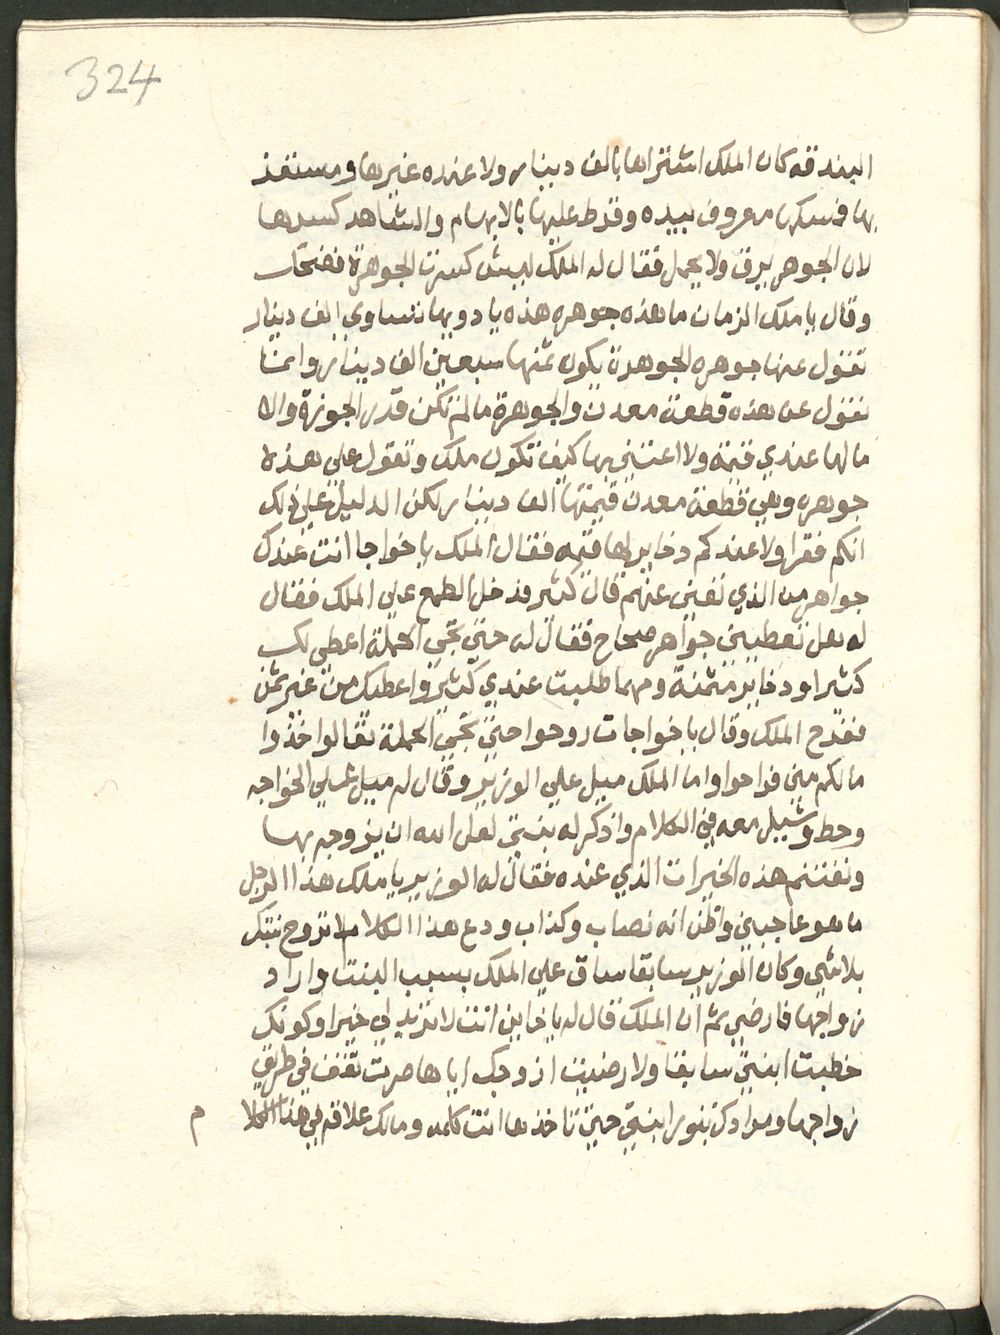 324
البندقه كان الملك اشتراها بالف دينار ولا عنده غيرها ومستفذ
بها فمسكها معروف بيده وقرط عليها بالابهام والشاهد كسرها
لان الجوهر يرق ولا يحمل فقال له الملك ليش كسرت الجوهرة فضحك
وقال يا ملك الزمان ما هذه جوهره هذه يا دوبها تساوي الف دينار
تقول عنها جوهره الجوهرة يكون ثمنها سبعين الف دينار وانما
نقول عن هذه قطعة معدن والجوهرة ما لم تكن قدر الجوزة والا
ما لها عندي قيمة ولا اعتني بها كيف تكون ملك وتقول على هذه
جوهره وهي قطعة معدن قيمتها الف دينار لكن الدليل على ذلك
انكم فقرا ولا عندكم دخاير لها قيمه فقال الملك يا خواجا انت عندك
جواهر من الذي تعني عنهم قال كثير فدخل الطمع على الملك فقال
له هل تعطيني جواهر صحاح فقال له حتى تجي الحملة اعطي لك
كثير او دخاير مثمنة ومهما طلبت عندي كثير واعطيك من غير ثمن
ففرح الملك وقال يا خواجات روحوا حتى تجي الحملة تقالوا خذوا
مالكم مني فراحوا واما الملك ميل على الوزير وقال له ميل على الخواجه
وحط وشيل معه في الكلام واذكر له بنتي لعل الله ان يزوجه بها
ونغتنم هذه الخيرات الذي عنده فقال له الوزير يا ملك هذا الرجل
ما هو عاجبني واظن انه نصاب وكذاب ودع هذا الكلام لا تزوج بنتك
بلاشي وكان الوزير سابقا ساق على الملك بسبب البنت واراد
زواجها فارضي ثم ان الملك قال له يا خاين انت لا تريد لي خيرا وكونك
خطبت ابنتي سابقا ولا رضيت ازوجك اياها صرت تقف في طريق
زواجها ومرادك تبور ابنتي حتى تاخذها انت كلمه ومالك علاقه في هذا الكلا م